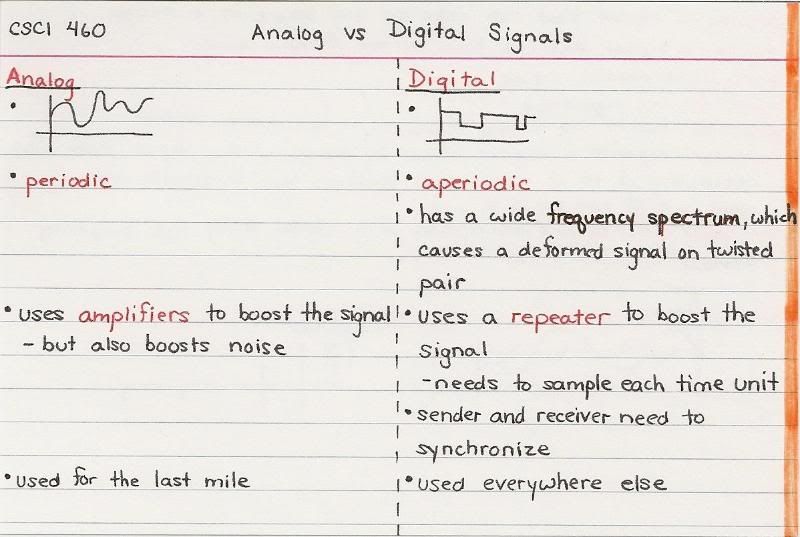 CSCI 460
Analog vs Digital Signals
Analog
• periodic
• uses amplifiers to boost the signal
- but also boosts noise
• used for the last mile
Digital
• aperiodic
• has a wide frequency spectrum, which
causes a deformed signal on twisted
pair
• uses a repeater to boost the
signal
- needs to sample each time unit
• sender and receiver need to
synchronize
• used everywhere else